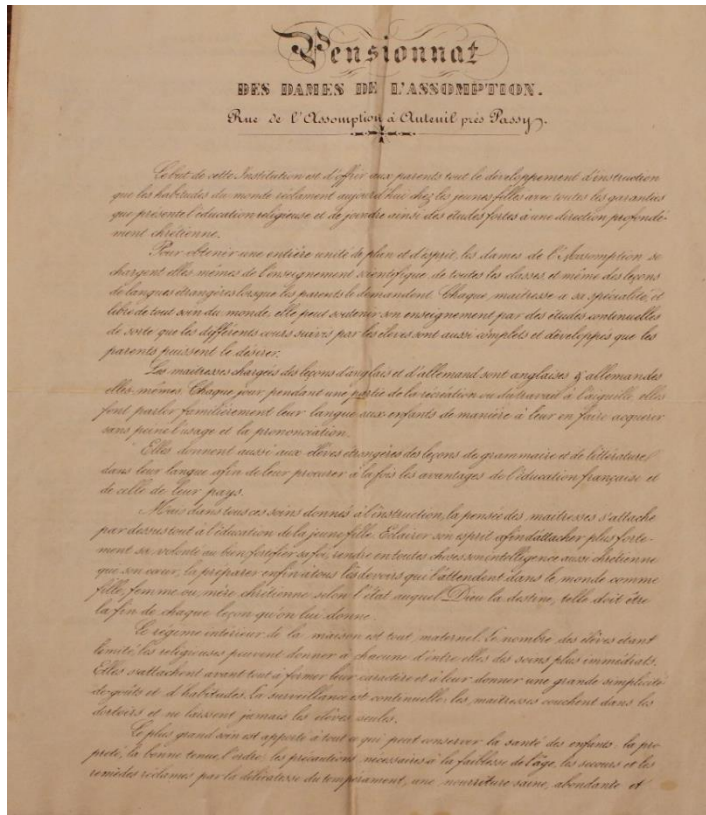 Pensionnat
DES DAMES DE L'ASSOMPTION.
Rue de l'Assomption à Auteuil près Passy.
Le but de cette Institution est d'offrir aux parents tout le développement d'instruction
que les habitudes du monde réclament aujourd'hui chez les jeunes filles avec toutes les garanties
que présente l'éducation religieuse et de joindre ainsi des études fortes à une direction profondé-
ment chrétienne.
Pour obtenir une entière unité de plan et d'esprit, les dames de l'Assomption se
chargent elles mêmes de l'enseignement scientifique de toutes les classes et même des leçons
de langues étrangères lorsque les parents le demandent. Chaque maitresse a sa spécialité, et
libre de tout soin du monde, elle peut soutenir son enseignement par des études continuelles
de sorte que les différents cours suivis par les élèves sont aussi complets et développés que les
parents puissent le désirer.
Les maitresses chargées des leçons d'anglais et d'allemand sont anglaises & allemandes
elles-mêmes. Chaque jour pendant une partie de la récréation ou du travail à l'aiguille, elles
font parler familièrement leur langue aux enfants de manière à leur en faire acquérir
sans peine l'usage et la prononciation.
Elles donnent aussi aux élèves étrangères des leçons de grammaire et de littérature
dans leur langue afin de leur procurer à la fois les avantages de l'éducation française et
de celle de leur pays.
Mais dans tous ces soins donnés à l'instruction, la pensée des maitresses s'attache
par dessus tout à l'éducation de la jeune fille. Eclairer son esprit afin d'attacher plus forte-
ment sa volonté au bien, fortifier sa foi, rendre en toutes choses son intelligence aussi chrétienne
que son cœur, la préparer enfin à tous les devoirs qui l'attendent dans le monde comme
fille, femme ou mère chrétienne selon l'état auquel Dieu la destine, telle doit être
la fin de chaque leçon qu'on lui donne.
Le régime intérieur de la maison est tout maternel. Le nombre des élèves étant
limité, les religieuses peuvent donner à chacune d'entre elles des soins plus immédiats.
Elles s'attachent avant tout à former leur caractère et à leur donner une grande simplicité
de goûts et d'habitudes. La surveillance est continuelle; les maitresses couchent dans les
dortoirs et ne laissent jamais les élèves seules.
Le plus grand soin est apporté à tout ce qui peut conserver la santé des enfants, la pro-
preté, la bonne tenue, l'ordre, les précautions nécessaires à la faiblesse de l'âge, les secours et les
remèdes réclamés par la délicatesse du tempérament, une nourriture saine, abondante et